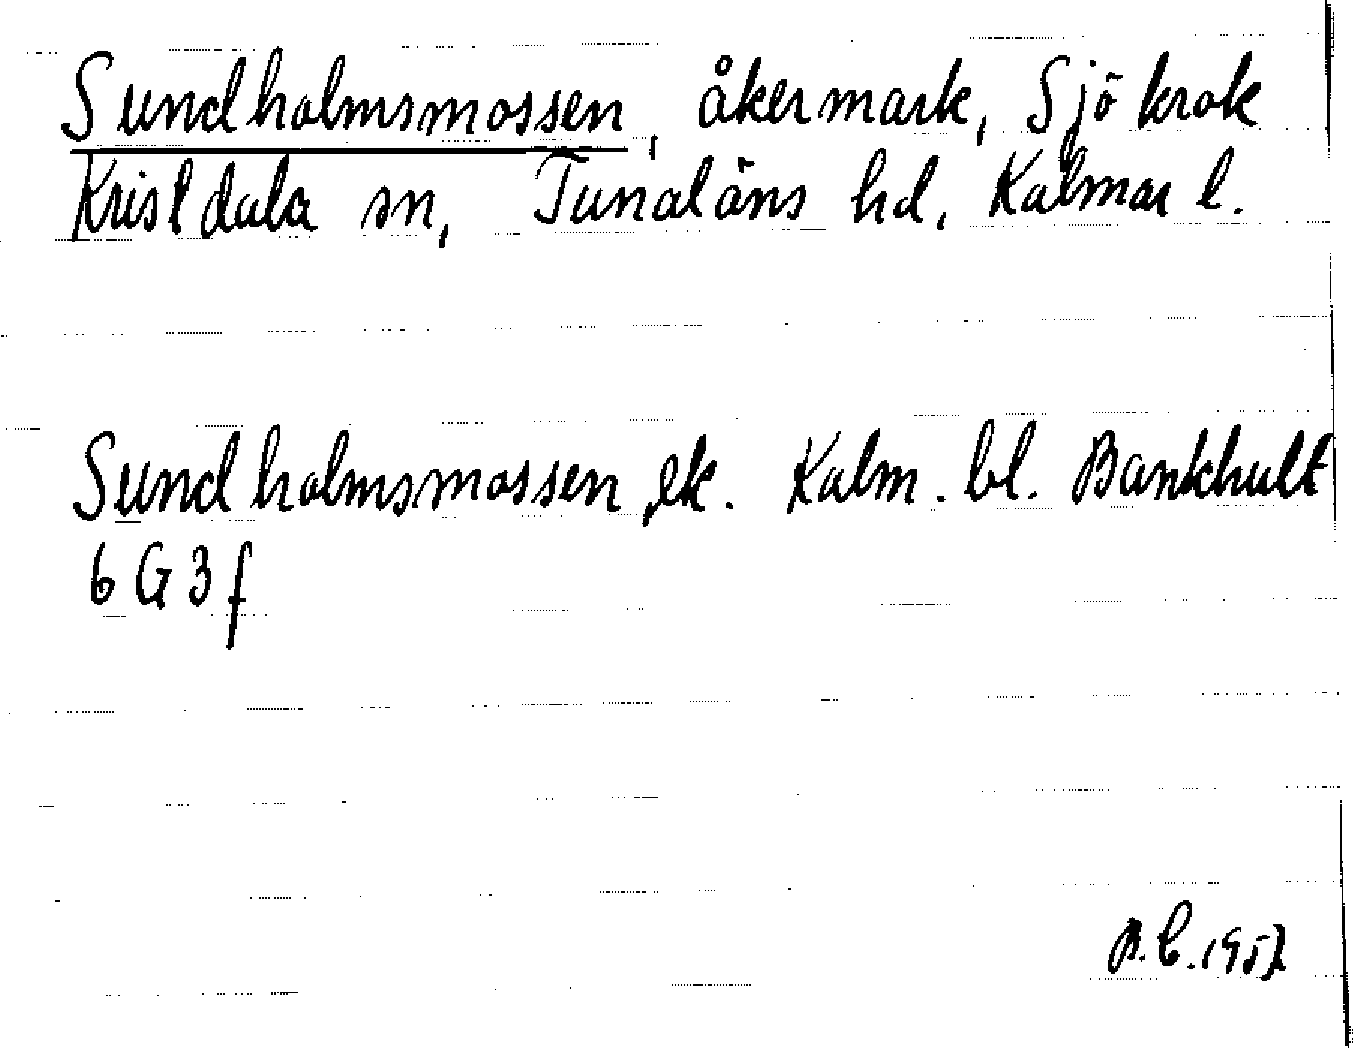 Sundholmsmossen, åkermark, Sjökrok
Kristdala sn, Tunaläns hd, Kalmar l.
Sundholmsmossen, ek. Kalm. bl. Bankhult
6 G 3 f
B.C. 1957